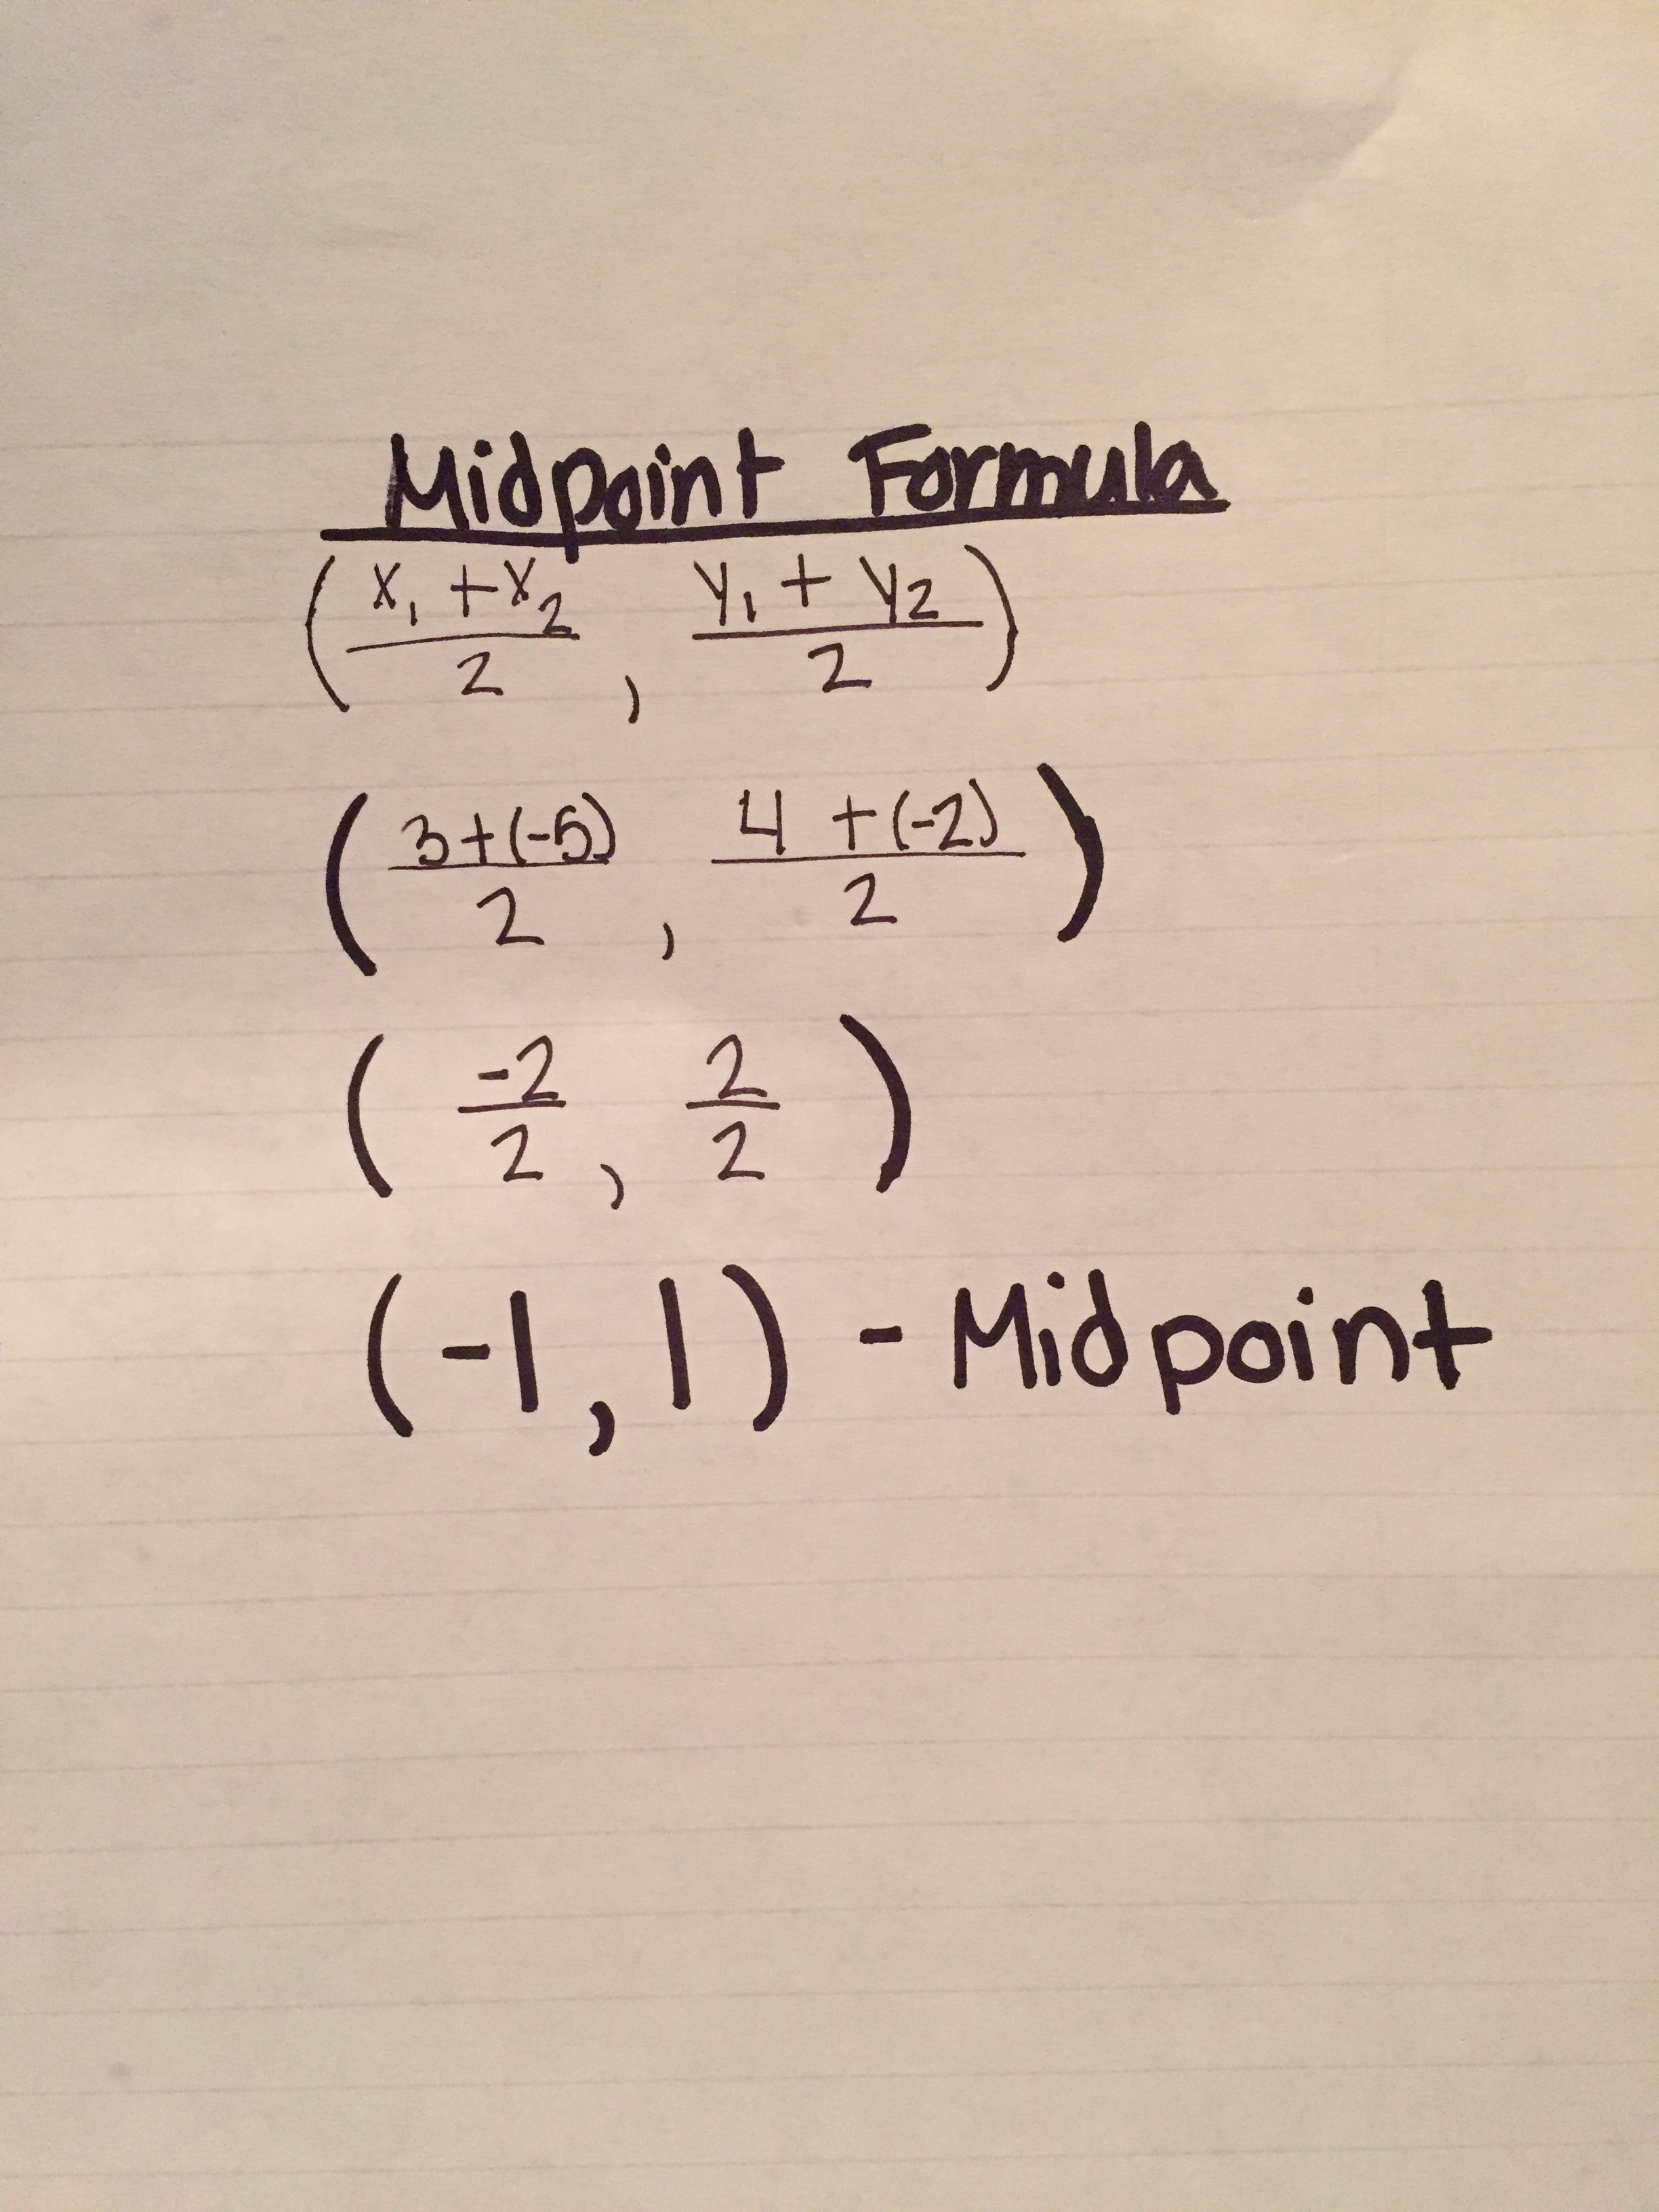 Midpoint Formula
(x₁ + x₂ / 2 , y₁ + y₂ / 2)
(3 + (-5) / 2 , 4 + (-2) / 2)
(-2 / 2 , 2 / 2)
(-1, 1) - Midpoint